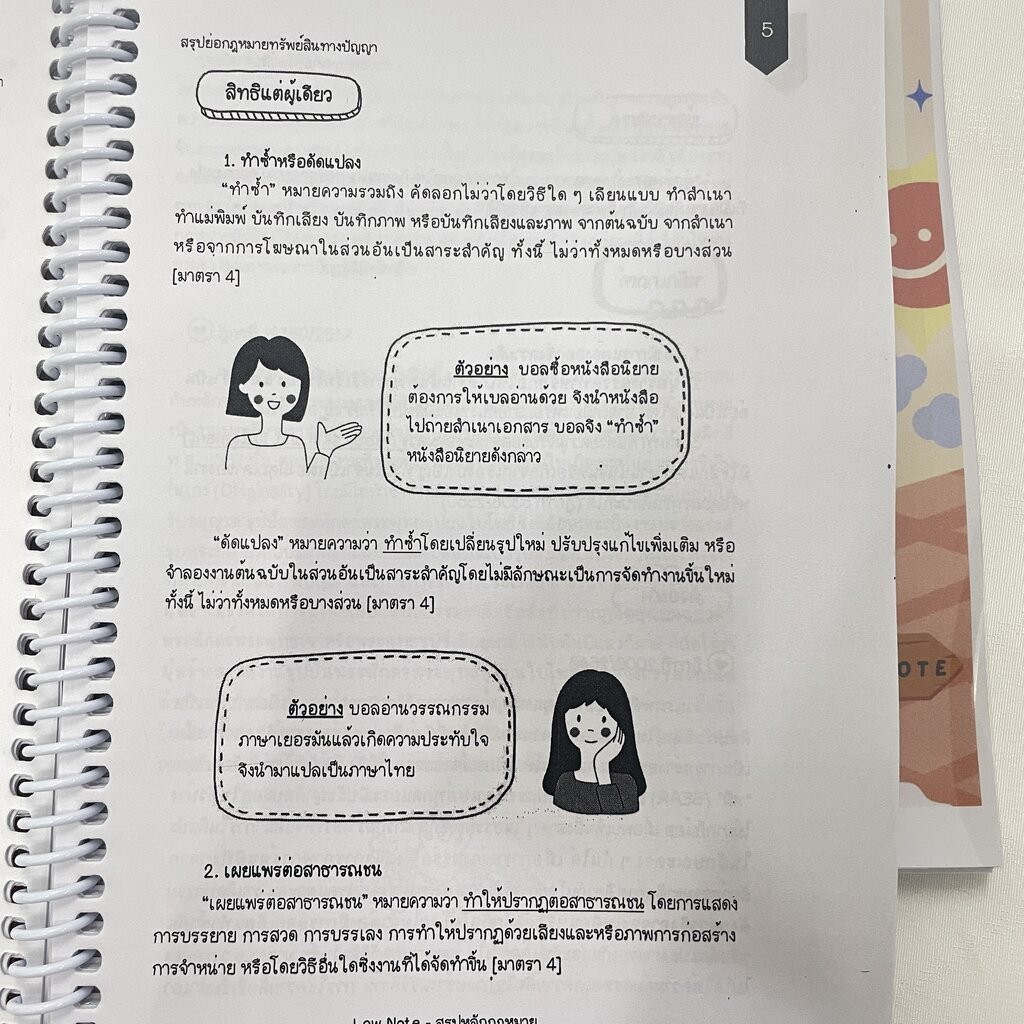 5
สรุปย่อกฎหมายทรัพย์สินทางปัญญา
สิทธิแต่ผู้เดียว
1. ทำซ้ำหรือดัดแปลง
“ทำซ้ำ” หมายความรวมถึง คัดลอกไม่ว่าโดยวิธีใด ๆ เลียนแบบ ทำสำเนา
ทำแม่พิมพ์ บันทึกเสียง บันทึกภาพ หรือบันทึกเสียงและภาพ จากต้นฉบับ จากสำเนา
หรือจากการโฆษณาในส่วนอันเป็นสาระสำคัญ ทั้งนี้ ไม่ว่าทั้งหมดหรือบางส่วน
[มาตรา 4]
ตัวอย่าง บอลซื้อหนังสือนิยาย
ต้องการให้เบลอ่านด้วย จึงนำหนังสือ
ไปถ่ายสำเนาเอกสาร บอลจึง “ทำซ้ำ”
หนังสือนิยายดังกล่าว
“ดัดแปลง” หมายความว่า ทำซ้ำโดยเปลี่ยนรูปใหม่ ปรับปรุงแก้ไขเพิ่มเติม หรือ
จำลองงานต้นฉบับในส่วนอันเป็นสาระสำคัญโดยไม่มีลักษณะเป็นการจัดทำงานขึ้นใหม่
ทั้งนี้ ไม่ว่าทั้งหมดหรือบางส่วน [มาตรา 4]
ตัวอย่าง บอลอ่านวรรณกรรม
ภาษาเยอรมันแล้วเกิดความประทับใจ
จึงนำมาแปลเป็นภาษาไทย
2. เผยแพร่ต่อสาธารณชน
“เผยแพร่ต่อสาธารณชน” หมายความว่า ทำให้ปรากฏต่อสาธารณชน โดยการแสดง
การบรรยาย การสวด การบรรเลง การทำให้ปรากฏด้วยเสียงและหรือภาพการก่อสร้าง
การจำหน่าย หรือโดยวิธีอื่นใดซึ่งงานที่ได้จัดทำขึ้น [มาตรา 4]
Law Note - สรุปหลักกฎหมาย
OTE